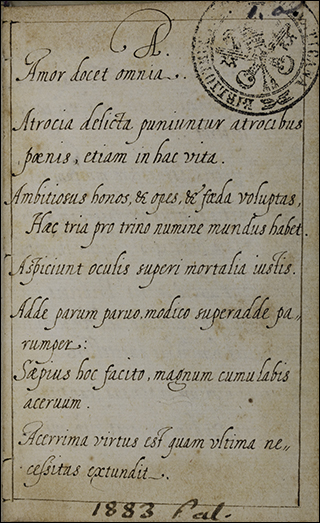 A.
Amor docet omnia..
Atrocia delicta puniuntur atrocibus
pœnis, etiam in hac vita.
Ambitiosus honos, & opes, & fœda voluptas,
Hæc tria pro trino numine mundus habet.
Aspiciunt oculis superi mortalia iustis.
Adde parum paruo, modico superadde pa,,
rumper:
Sæpius hoc facito, magnum cumulabis
aceruum.
Acerrima virtus est quam vltima ne,,
cessitas extundit.
1883 Pal.